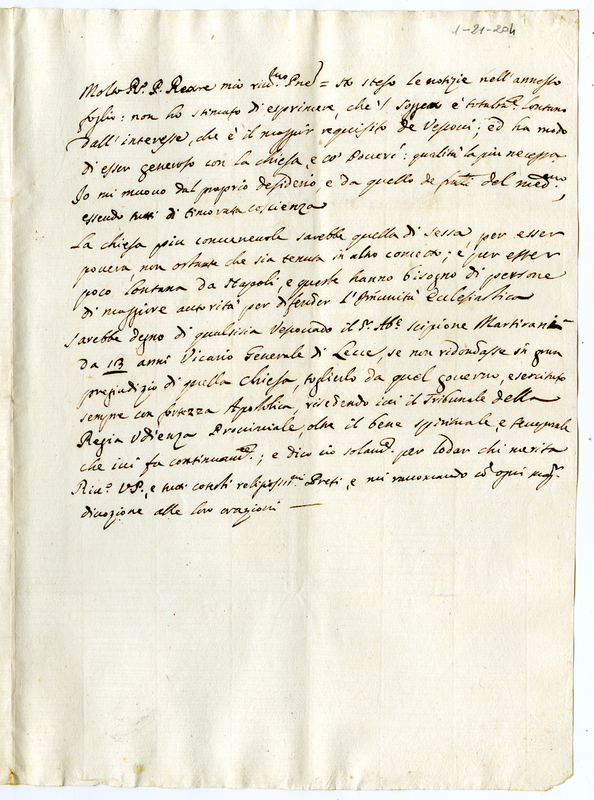 1-21-204
Molto Rdo P. Rettore mio riv.mo Pne = Ho steso le notizie nell'annesso
foglio: non ho stimato di esprimere, che 'l sogg.tto è totalm.te lontano
dall'interesse, che è il maggior requisito de Vescovi; ed ha modo
di esser generoso con la chiesa, e co' Poveri: qualità la più necessa
Io mi muovo dal proprio desiderio e da quello de frati del med.mo,
essendo tutti di timorata coscienza
La chiesa più convenevole sarebbe quella di Sessa, per esser
povera, non ostante che sia tenuta in altro concetto; e per esser
poco lontana da Napoli, e queste hanno bisogno di persone
di maggiore autorità per difender l'Immunità Ecclesiastica
Sarebbe degno di qualsisia Vescovado il Sr. Abe. Scipione Martirani
da 13 anni Vicario Generale di Lecce, se non ridondasse in gran
pregiudizio di quella chiesa, toglierlo da quel governo, esercitato
sempre con fortezza Apostolica, risedendo ivi il Tribunale della
Regia Udienza Provinciale, oltre il bene spirituale, e temporale
che ivi fa continuam.te; e dico ciò solam.te per lodar chi merita
Riv.o V.P. e tutti cotesti religiosis.mi Preti, e mi raccomando co ogni mag.r
divozione alle loro orazioni —